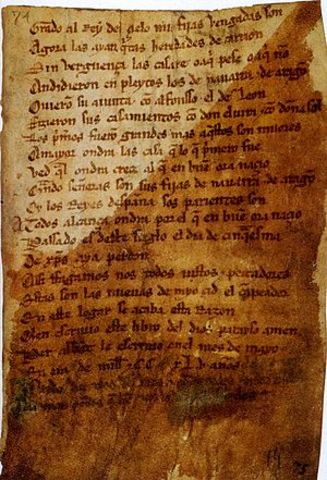 74
Grado al Rey del çielo mis fijas vengadas son
Agora las ayan q̃tas heredades de carrion
Sin verguença las casare o aq̃ pese o aq̃ no
Andidieron en pleytos los de nauarra & de aragõ
Ouieron su aiunta cõ alfonsso el de leon
Fizieron sus casamientos cõ don eluira & cõ doña sol
Los p̃meros fuerõ grandes mas aq̃stos son miiores
A mayor ondra las casa q̃ lo q̃ p̃mero fue
Ved q̃l ondra creçe al q̃ en buẽ ora naçio
Quãdo señoras son sus fijas de nauarra & de aragõ
Oy los Reyes despaña sos parientes son
A Todos alcança ondra por el q̃ en buẽ ora naçio
Passado es deste sieglo el dia de cinq̃esma
De xp̃s aya perdon
Assi ffagamos nos todos iustos & pecadores
Estas son las nueuas de myo çid el canpeador
En este logar se acaba esta Razon
Quien escriuio este libro del dios parayso amen
Per abbat le escriuio en el mes de mayo
En era de mill & CC xLv años
75